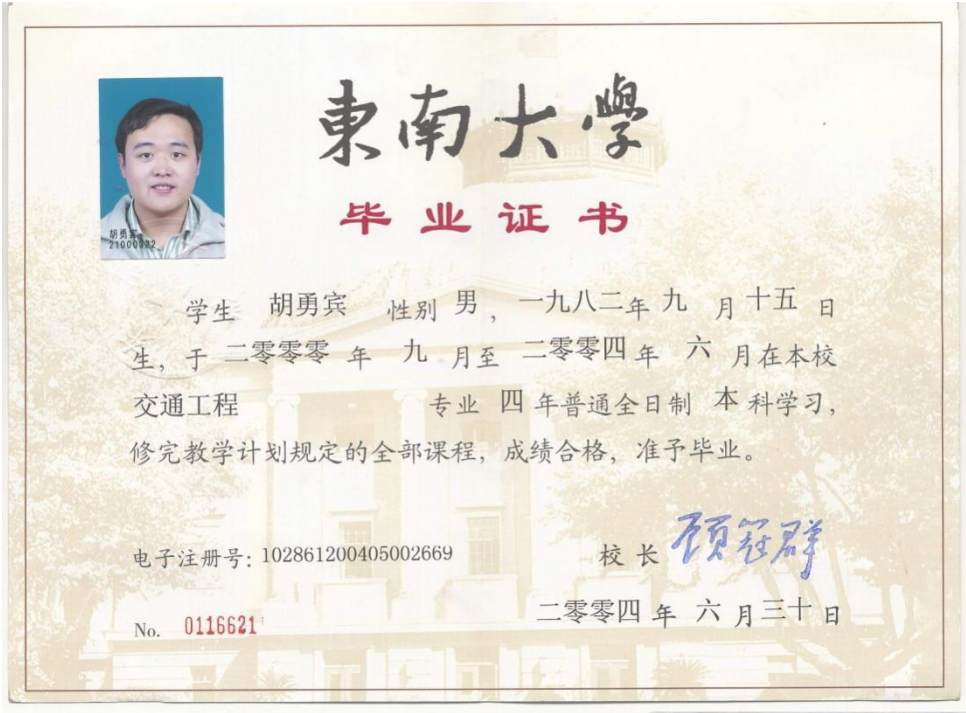 東南大學
毕业证书
胡勇宾
21000222
学生 胡勇宾 性别 男, 一九八二年 九 月 十五 日
生, 于 二零零零 年 九 月至 二零零四 年 六 月在本校
交通工程 专业 四 年普通全日制 本 科学习,
修完教学计划规定的全部课程, 成绩合格, 准予毕业。
电子注册号: 102861200405002669
校长 顾冠群
No. 0116621
二零零四 年 六 月 三十 日